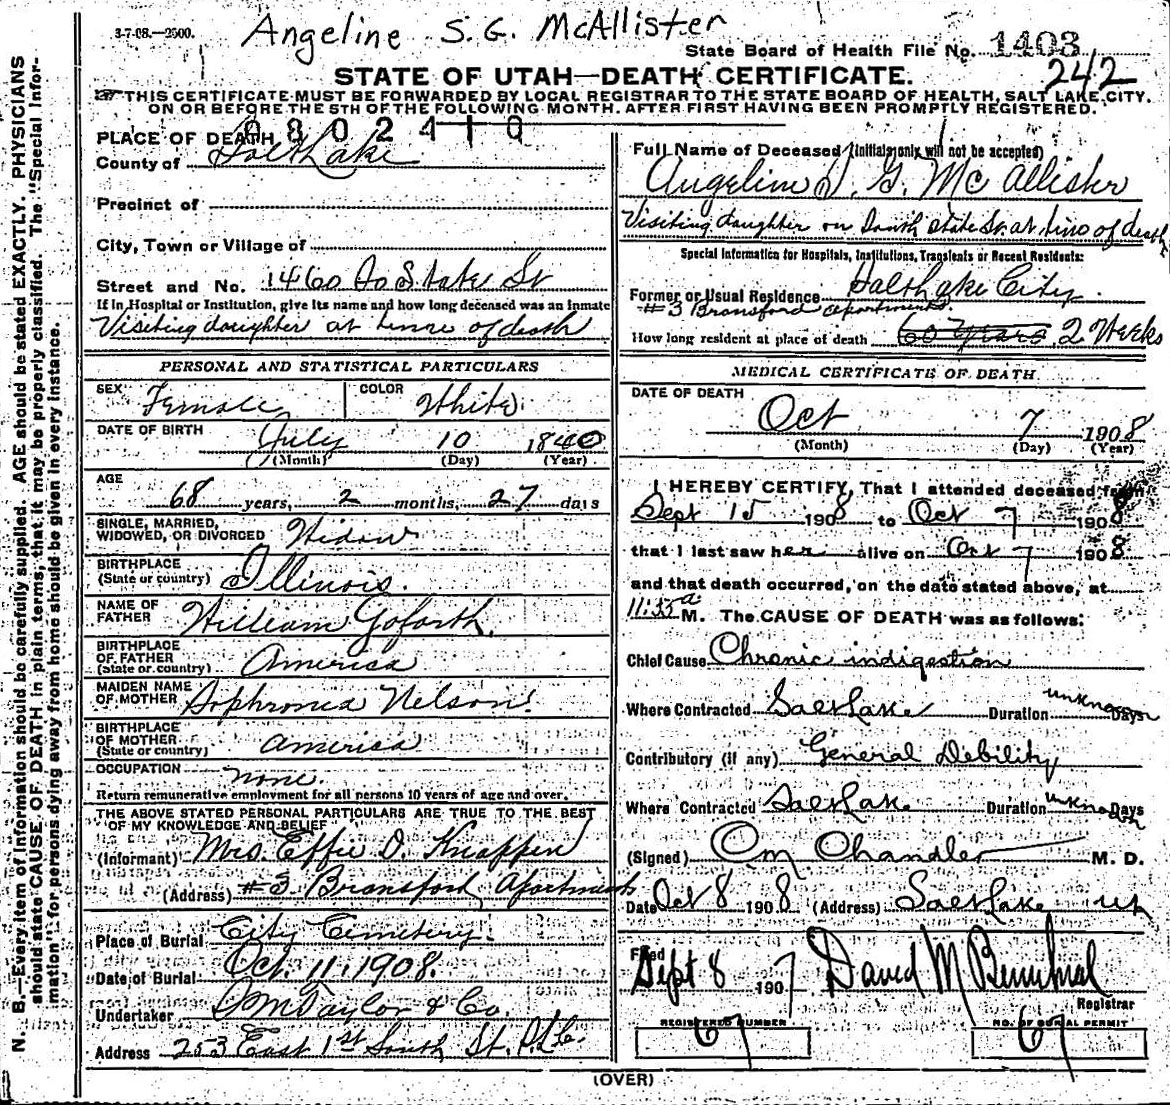 3-7-08.—2500.
Angeline S. G. McAllister
State Board of Health File No. 1403
242
STATE OF UTAH—DEATH CERTIFICATE.
THIS CERTIFICATE MUST BE FORWARDED BY LOCAL REGISTRAR TO THE STATE BOARD OF HEALTH, SALT LAKE CITY.
ON OR BEFORE THE 5TH OF THE FOLLOWING MONTH, AFTER FIRST HAVING BEEN PROMPTLY REGISTERED.
N. B.—Every item of information should be carefully supplied. AGE should be stated EXACTLY. PHYSICIANS
should state CAUSE OF DEATH in plain terms, that it may be properly classified. The "Special Infor-
mation" for persons dying away from home should be given in every instance.
0802410
PLACE OF DEATH
County of Salt Lake
Precinct of
City, Town or Village of
Street and No. 1460 So State St
If in Hospital or Institution, give its name and how long deceased was an inmate
Visiting daughter at time of death
PERSONAL AND STATISTICAL PARTICULARS
SEX Female COLOR White
DATE OF BIRTH July 10 1840
(Month) (Day) (Year)
AGE
68 years, 2 months, 27 days
SINGLE, MARRIED,
WIDOWED, OR DIVORCED Widow
BIRTHPLACE
(State or country) Illinois.
NAME OF
FATHER William Goforth.
BIRTHPLACE
OF FATHER
(State or country) America
MAIDEN NAME
OF MOTHER Sophronia Nelson.
BIRTHPLACE
OF MOTHER
(State or country) America
OCCUPATION none.
Return remunerative employment for all persons 10 years of age and over.
THE ABOVE STATED PERSONAL PARTICULARS ARE TRUE TO THE BEST
OF MY KNOWLEDGE AND BELIEF
(Informant) Mrs. Effie D. Knappen
(Address) #3 Bransford Apartments
Place of Burial City Cemetery.
Date of Burial Oct. 11. 1908.
Undertaker Taylor & Co.
Address 253 East 1st South St.
Full Name of Deceased (Initials only will not be accepted)
Angeline S. G. McAllister
Visiting daughter on South State St. at time of death
Special Information for Hospitals, Institutions, Transients or Recent Residents:
Former or Usual Residence Salt Lake City
#3 Bransford apartments.
How long resident at place of death 60 Years. 2 Weeks
MEDICAL CERTIFICATE OF DEATH
DATE OF DEATH
Oct 7 1908
(Month) (Day) (Year)
I HEREBY CERTIFY, That I attended deceased from
Sept 15 1908 to Oct 7 1908
that I last saw her alive on Oct 7 1908
and that death occurred, on the date stated above, at
11:35 a M. The CAUSE OF DEATH was as follows:
Chief Cause Chronic indigestion
Where Contracted Salt Lake Duration unknown Days
Contributory (if any) General Debility
Where Contracted Salt Lake Duration unknown Days
(Signed) Chandler M. D.
Date Oct 8 1908 (Address) Salt Lake Ut
Filed Sept 8 1907 David M
Registrar
REGISTERED NUMBER NO. OF BURIAL PERMIT
67 67
(OVER)